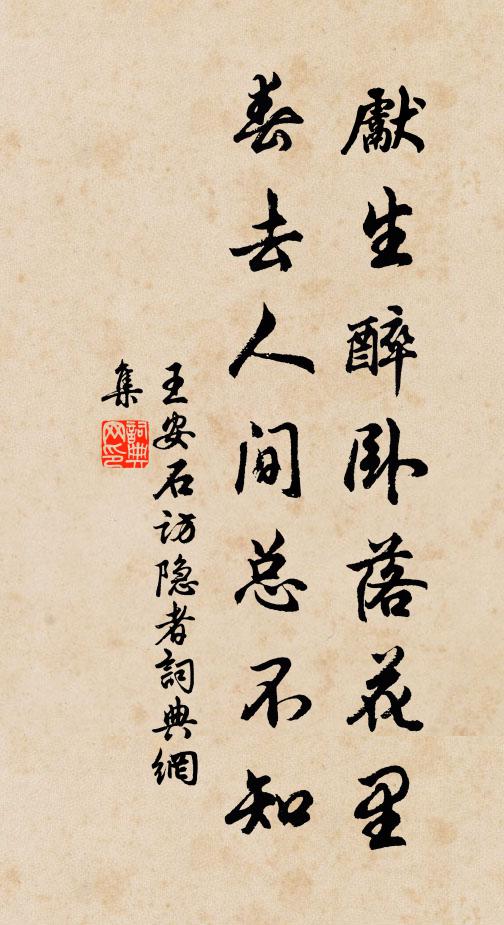 獻生醉卧落花里
春去人间总不知
王安石访隐者詞典網
集
詞典
网印